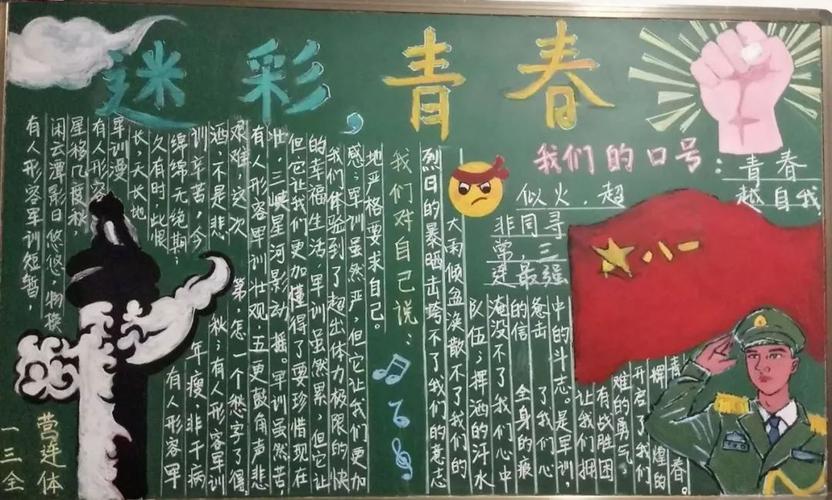 迷彩,青春
我们的口号:青春
似火,超越自我,
非同寻
常,三
连最强
有人形容军训短暂,
闲云潭影日悠悠,物换
星移几度秋
有人形容
军训漫
长,天长地
久有时,此恨
绵绵无绝期;有人形容军
训辛苦,今年瘦,非干病
酒,不是悲秋;有人形容军训
艰难,这次第,怎一个愁字了得
有人形容军训壮观,五更鼓角声悲
壮,三峡星河影动摇。军训虽然苦,
但它让我们更加懂得了要珍惜现在
的幸福生活,军训虽然累,但它让
我们体验到了超出体力极限的快
感;军训虽然严,但它让我们更加
地严格要求自己。
我们对自己说:
烈日的暴晒击垮不了我们的意志
大雨倾盆涣散不了我们的
队伍;挥洒的汗水
淹没不了我们心中
的信 全身的疲
惫击 了我们心
中的斗志。是军训,
让我们拥
有战胜困
难的勇气
开启了我们
辉煌的
青春。
八一
一营
三连
全体